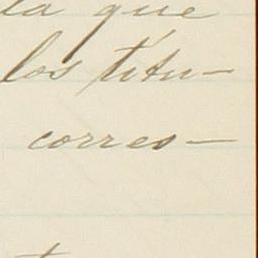 la que
los títu-
corres-